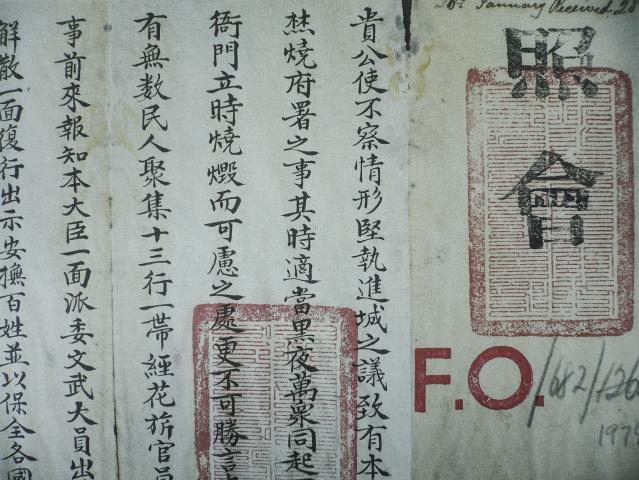 January Received
照會
F.O.
682/126
貴公使不察情形堅執進城之議致有本
焚燒府署之事其時適當黑夜萬衆同起
衙門立時燒燬而可慮之處更不可勝言
有無数民人聚集十三行一帶經花旂官員
事前來報知本大臣一面派委文武大員出
解散一面復行出示安撫百姓並以保全各國